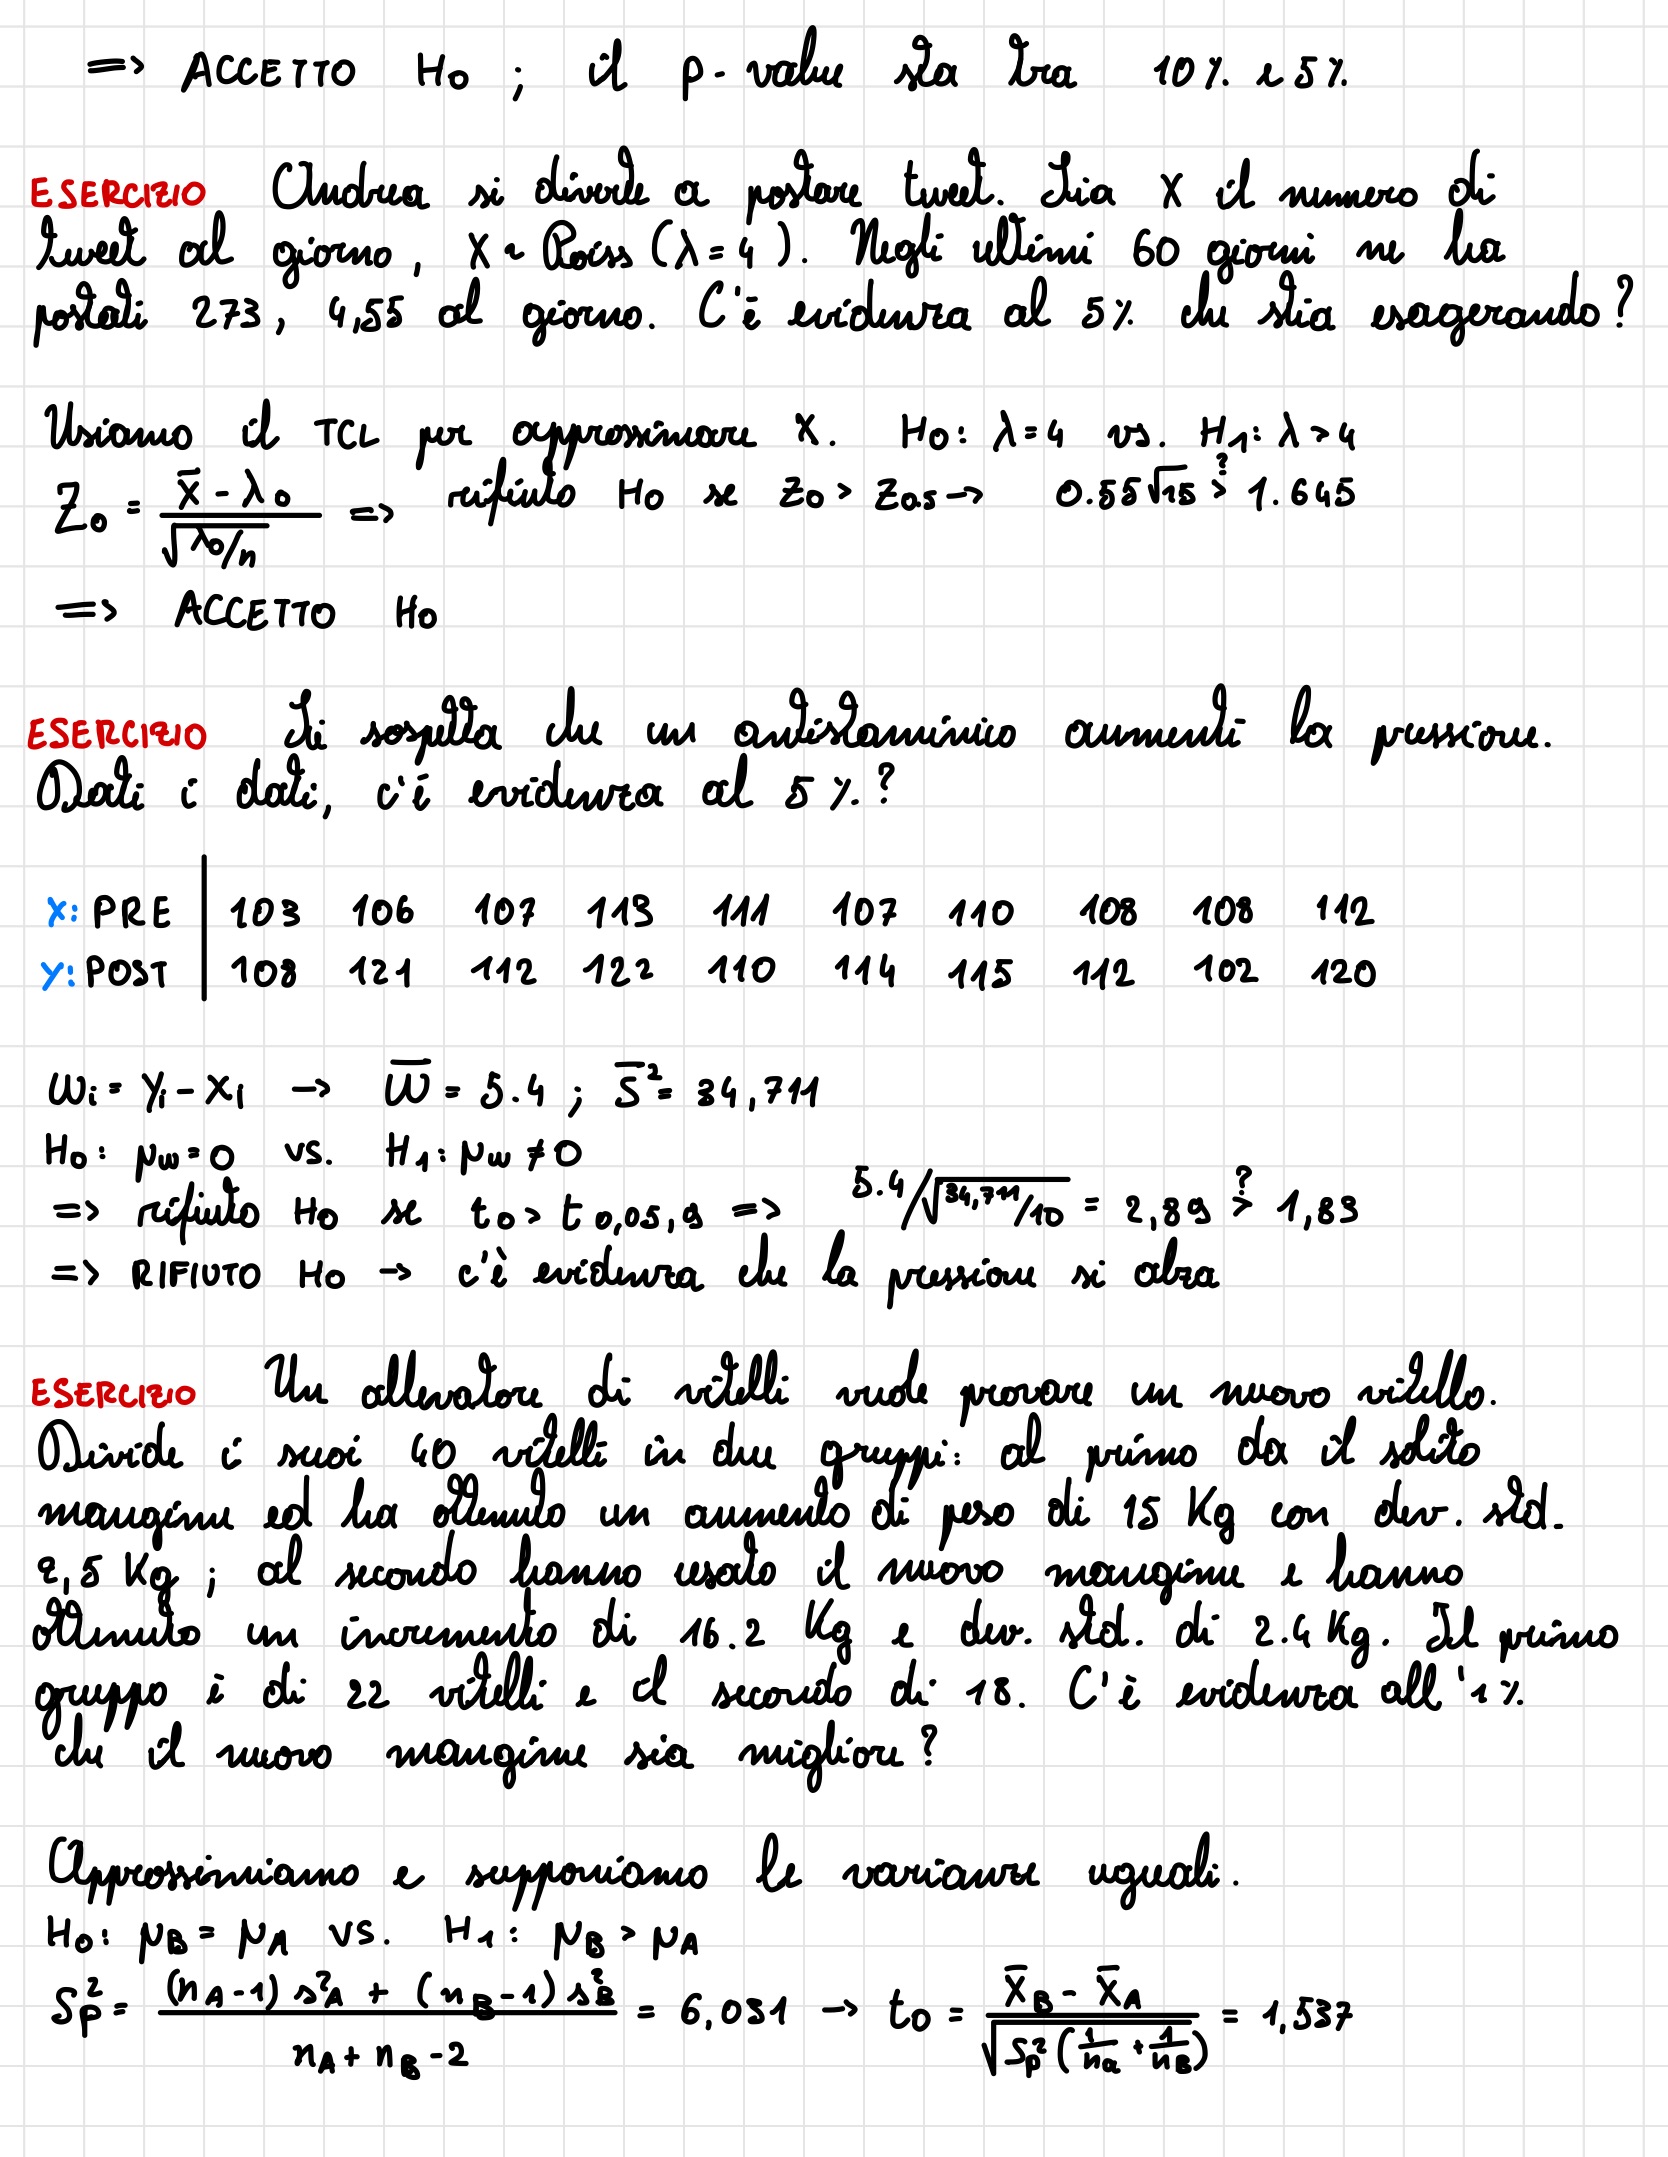 => ACCETTO H0 ; il p-value sta tra 10% e 5%
ESERCIZIO Andrea si diverte a postare tweet. Sia X il numero di
tweet al giorno, X ~ Poiss (λ=4). Negli ultimi 60 giorni ne ha
postati 273, 4,55 al giorno. C'è evidenza al 5% che stia esagerando?
Usiamo il TCL per approssimare X. H0: λ=4 vs. H1: λ>4
Z0 = (X̄ - λ0) / √(λ0/n) => rifiuto H0 se Z0 > Z0.5 -> 0.55√15 >? 1.645
=> ACCETTO H0
ESERCIZIO Si sospetta che un antistaminico aumenti la pressione.
Dati i dati, c'è evidenza al 5%?
X: PRE | 103 106 107 113 111 107 110 108 108 112
Y: POST | 108 121 112 122 110 114 115 112 102 120
Wi = Yi - Xi -> W̄ = 5.4 ; S̄² = 34,711
H0: μw = 0 vs. H1: μw ≠ 0
=> rifiuto H0 se t0 > t0,05,9 => 5.4/√(34,711/10) = 2,89 >? 1,83
=> RIFIUTO H0 -> c'è evidenza che la pressione si alza
ESERCIZIO Un allevatore di vitelli vuole provare un nuovo vitello.
Divide i suoi 40 vitelli in due gruppi: al primo da il solito
mangime ed ha ottenuto un aumento di peso di 15 Kg con dev. std.
2,5 Kg ; al secondo hanno usato il nuovo mangime e hanno
ottenuto un incremento di 16.2 Kg e dev. std. di 2.4 Kg. Il primo
gruppo è di 22 vitelli e il secondo di 18. C'è evidenza all'1%
che il nuovo mangime sia migliore?
Approssimiamo e supponiamo le varianze uguali.
H0: μB = μA VS. H1: μB > μA
Sp² = ((nA-1) s²A + (nB-1) s²B) / (nA + nB - 2) = 6,031 -> t0 = (X̄B - X̄A) / √(Sp² (1/na + 1/nB)) = 1,537